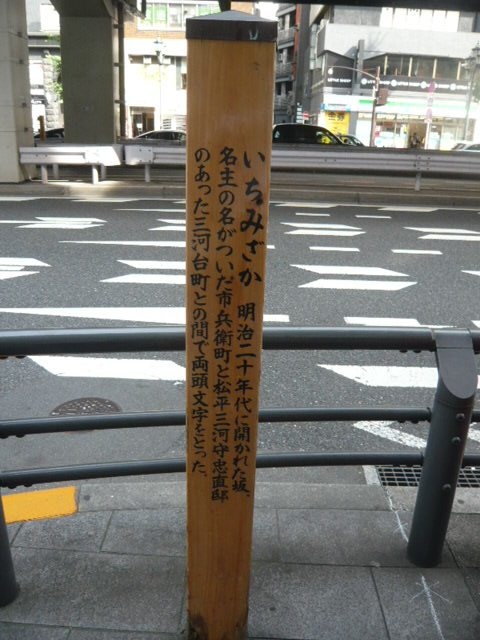 いちみざか 明治二十年代に開かれた坂、
名主の名がついだ市兵衛町と松平三河守忠直邸
のあった三河台町との間で両頭文字をとった。